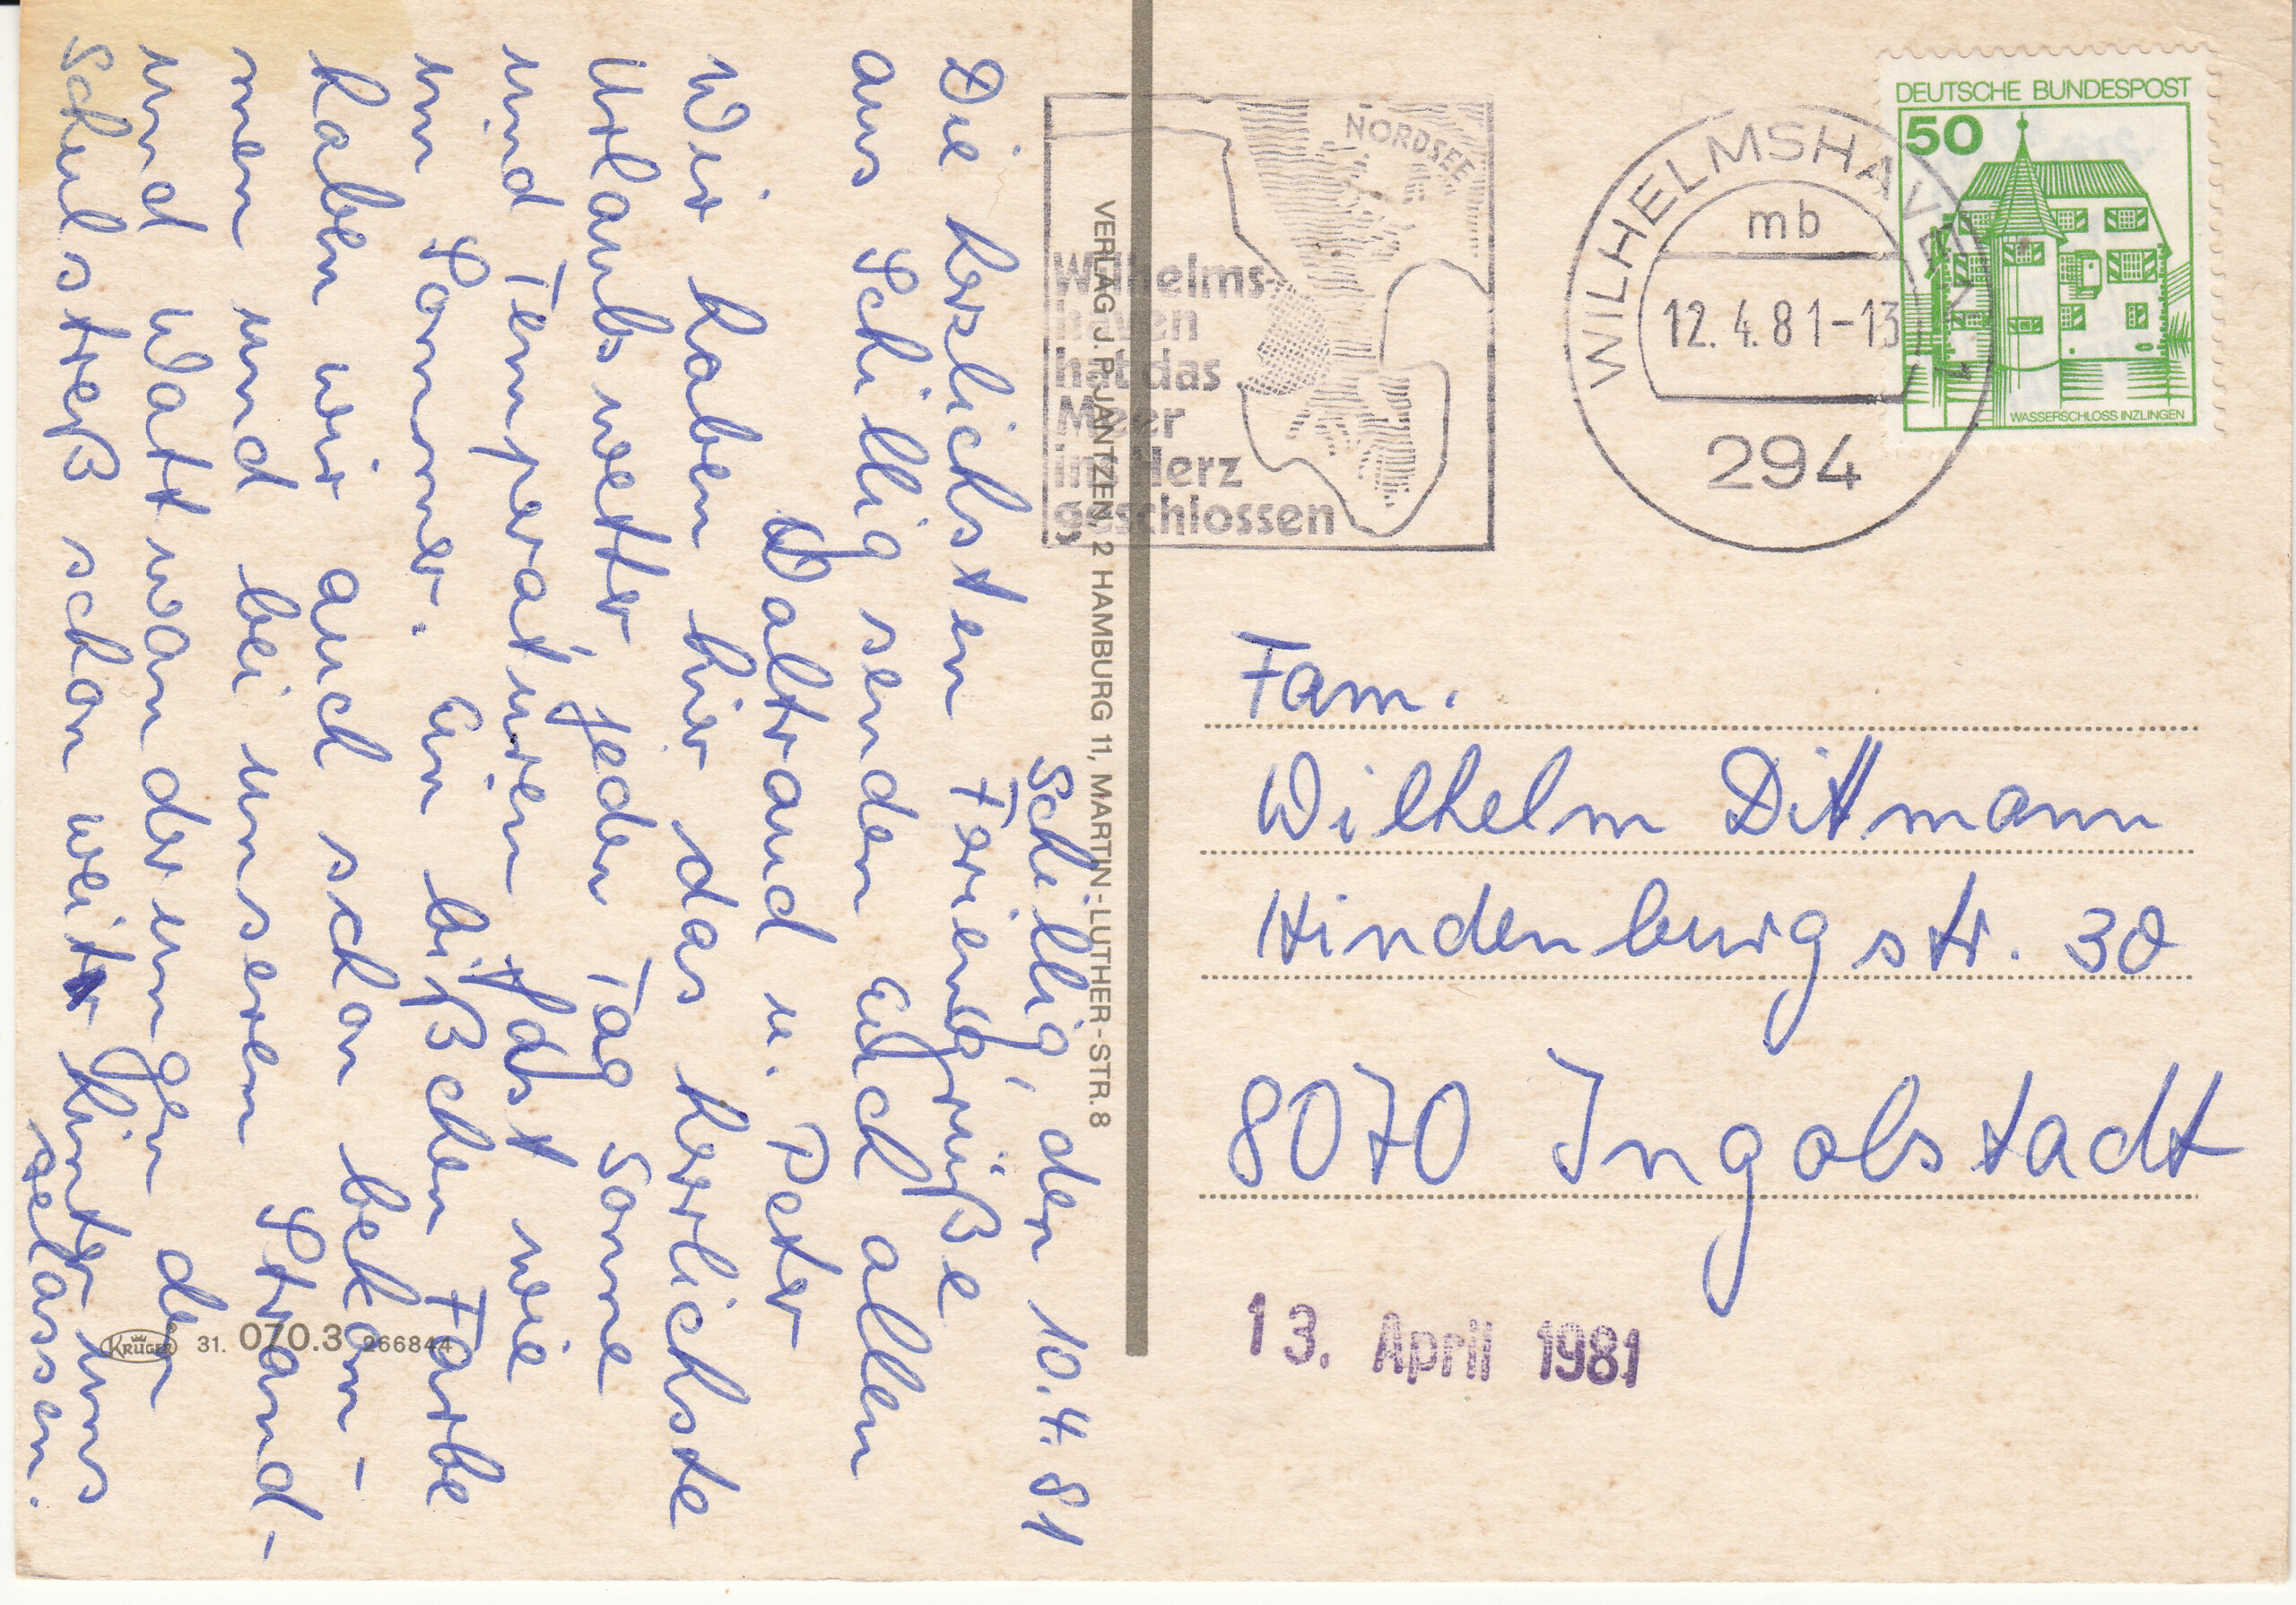 Schillig, den 10.4.81
Die herzlichsten Feriengrüße
aus Schillig senden euch allen
Waltraud u. Peter
Wir haben hier das herlichste
Urlaubswetter jeden Tag Sonne
und Temperaturen fast wie
im Sommer. Ein bißchen Farbe
haben wir auch schon bekom-
men und bei unseren Strand-
und Wattwanderungen den
Schulstreß schon weit hinter uns
gelassen.
VERLAG J. P. JANTZEN, 2 HAMBURG 11, MARTIN-LUTHER-STR. 8
KRÜGER 31. 070.3 266844
NORDSEE
Wilhelms-
haven
hat das
Meer
ins Herz
geschlossen
WILHELMSHAVEN 1
mb
12.4.81-13
294
DEUTSCHE BUNDESPOST
50
WASSERSCHLOSS INZLINGEN
Fam.
Wilhelm Dittmann
Hindenburgstr. 30
8070 Ingolstadt
13. April 1981